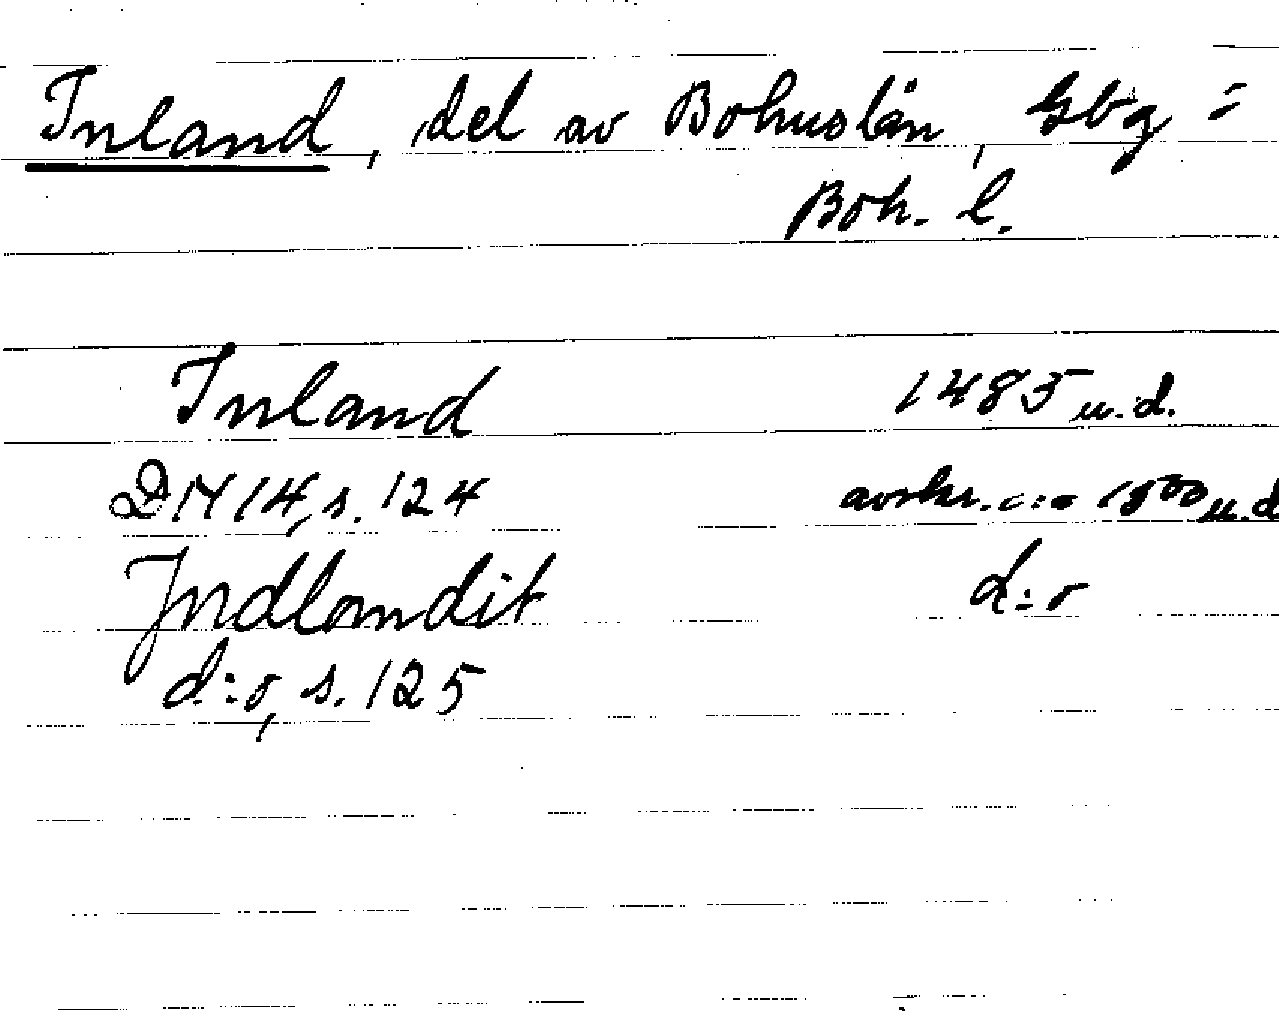 Inland, del av Bohuslän, Gbg =
Boh. l.
Inland 1485 u.d.
DN 14, s. 124 avskr. c:a 1500 u.d
Jndlandit d:o
d:o, s. 125